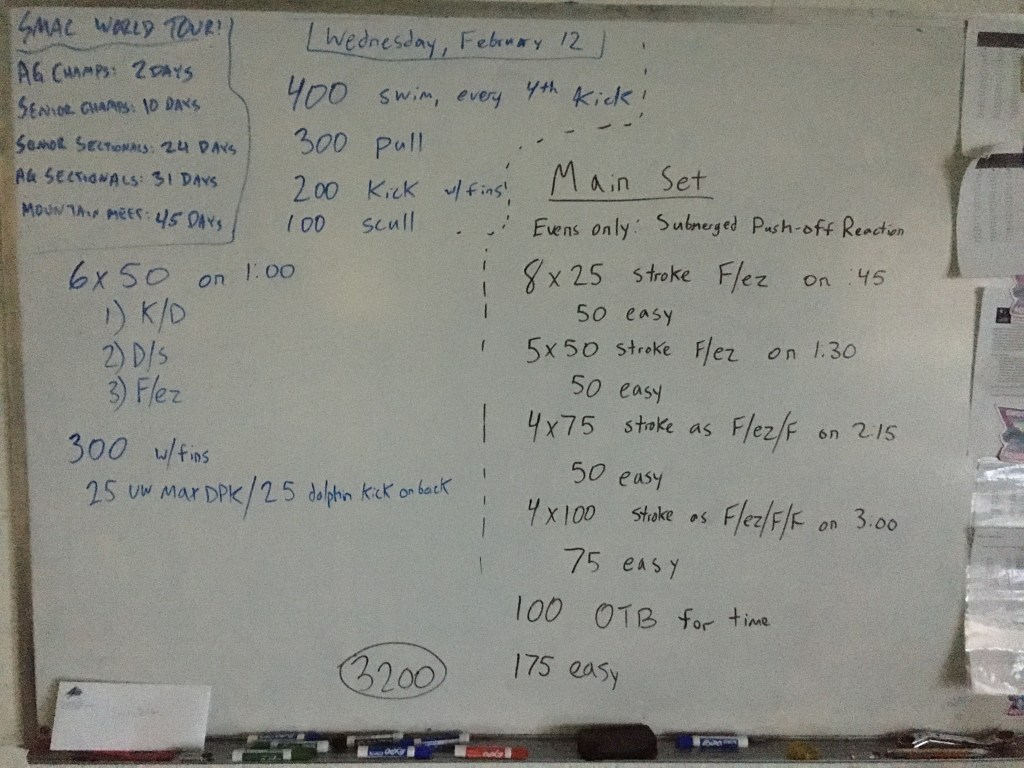 SMAC WORLD TOUR!
AG CHAMPS: 2 DAYS
SENIOR CHAMPS: 10 DAYS
SENIOR SECTIONALS: 24 DAYS
AG SECTIONALS: 31 DAYS
MOUNTAIN MEET: 45 DAYS
Wednesday, February 12
400 swim, every 4th Kick
300 pull
200 Kick w/fins
100 scull
6x50 on 1:00
1) K/D
2) D/s
3) F/ez
300 w/fins
25 UW Max DPK/25 dolphin kick on back
Main Set
Evens only: Submerged Push-off Reaction
8x25 stroke F/ez on :45
50 easy
5x50 stroke F/ez on 1:30
50 easy
4x75 stroke as F/ez/F on 2:15
50 easy
4x100 stroke as F/ez/F/F on 3:00
75 easy
100 OTB for time
175 easy
3200
EXPO